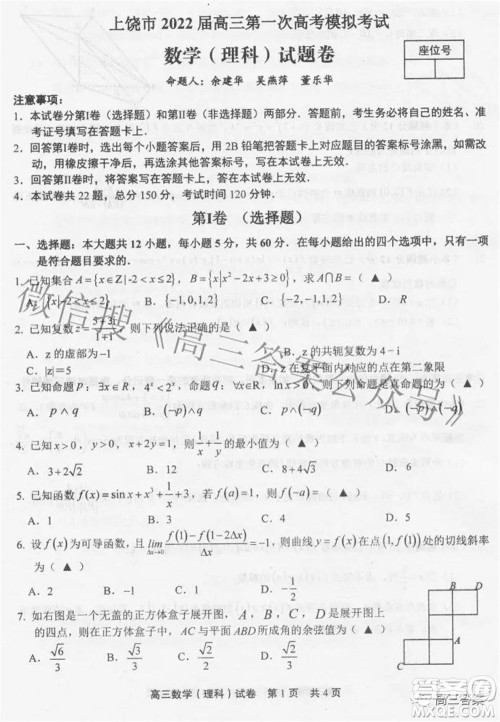 上饶市 2022 届高三第一次高考模拟考试
数学（理科）试题卷
座位号
命题人：余建华 吴燕萍 董乐华
注意事项：
1. 本试卷分第Ⅰ卷（选择题）和第Ⅱ卷（非选择题）两部分. 答题前，考生务必将自己的姓名、准
考证号填写在答题卡上.
2. 回答第Ⅰ卷时，选出每个小题答案后，用 2B 铅笔把答题卡上对应题目的答案标号涂黑，
如需改动，用橡皮擦干净后，再选涂其它答案标号，写在本试卷上无效.
3. 回答第Ⅱ卷时，将答案写在答题卡上，答在本试卷上无效.
4. 本试卷共 22 题，总分 150 分，考试时间 120 分钟.
第Ⅰ卷 （选择题）
一、选择题：本大题共 12 小题，每小题 5 分，共 60 分. 在每小题给出的四个选项中，只有一项
是符合题目要求的.
1. 已知集合 A={x∈Z|-2<x≤2}，B={x|x²-2x+3≥0}，求A∩B=（ ▲ ）
A. {x|-2<x≤2} B. {-1,0,1,2} C. {-2,-1,0,1,2} D. R
2. 已知复数 z=，则下列说法正确的是（ ▲ ）
A. z 的虚部为 B. z 的共轭复数为 4－i
C. |z|=5 D. z 在复平面内对应的点在第二象限
3. 已知命题 p，∃x∈R，4ˣ<2ˣ，命题，则下列命题是真命题的为（ ▲ ）
A. p∧q B. (¬p)∧q C. D.
4. 已知 x>0，y>0，且，则的最小值为（ ▲ ）
A. 3+2√2 B. 12 C. 8+4√3 D. 16
5. 已知函数 f(x)=sin x+x³+1/x+3，若 f(a)=-1，则 f(-a)=（ ▲ ）
A. 1 B. 3 C. 4 D. 7
6. 设 f(x) 为可导函数，且 lim(Δx→0) [f(1)-f(1-2Δx)]/Δx=-1，则曲线 y=f(x) 在点 (1,f(1)) 处的切线斜率
为（ ▲ ）
A. 2 B. -1 C. 1 D. -1/2
7. 如右图是一个无盖的正方体盒子展开图，A，B，C，D 是展开图上
的四点，则在正方体盒子中，AC 与平面 ABD 所成角的余弦值为（ ▲ ）
A. √6/3 B. C. √3/3 D.
B
D
A
C
高三数学（理科）试卷 第 1 页 共 4 页
微信搜《高三答案公众号》
高三答案